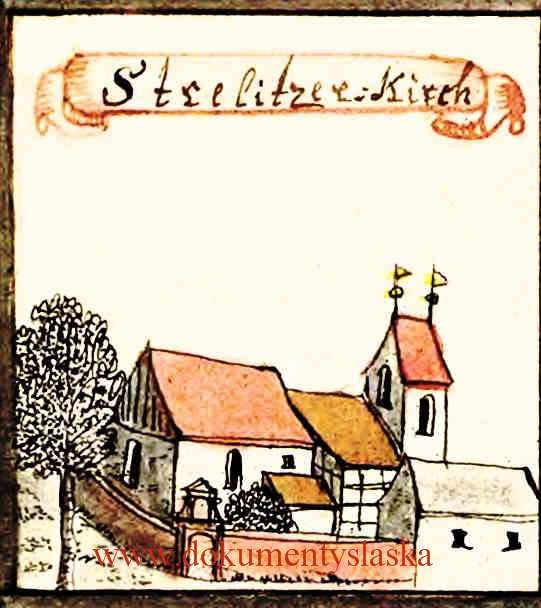 Strelitzer=Kirch
www.dokumentyslaska